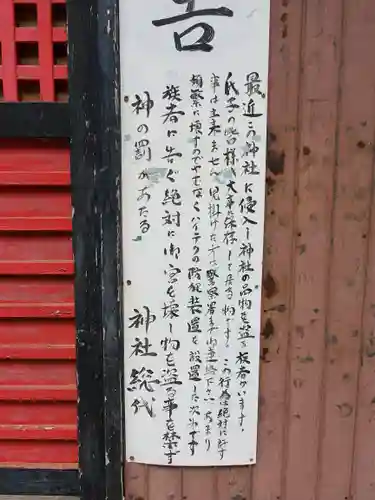 告
最近この神社に侵入し神社の品物を盗る族者がいます。
氏子の皆様が大事に保存して居る物です。この行為は絶対に許す
事は出来ません。見掛けた方は警察署まで御連絡下さい。あまり
頻繁に壊すのでやむなくハイテクの防犯装置を設置した次第です。
族者に告ぐ絶対に御宮を壊し物を盗る事を禁ず
神の罰があたる
神社総代